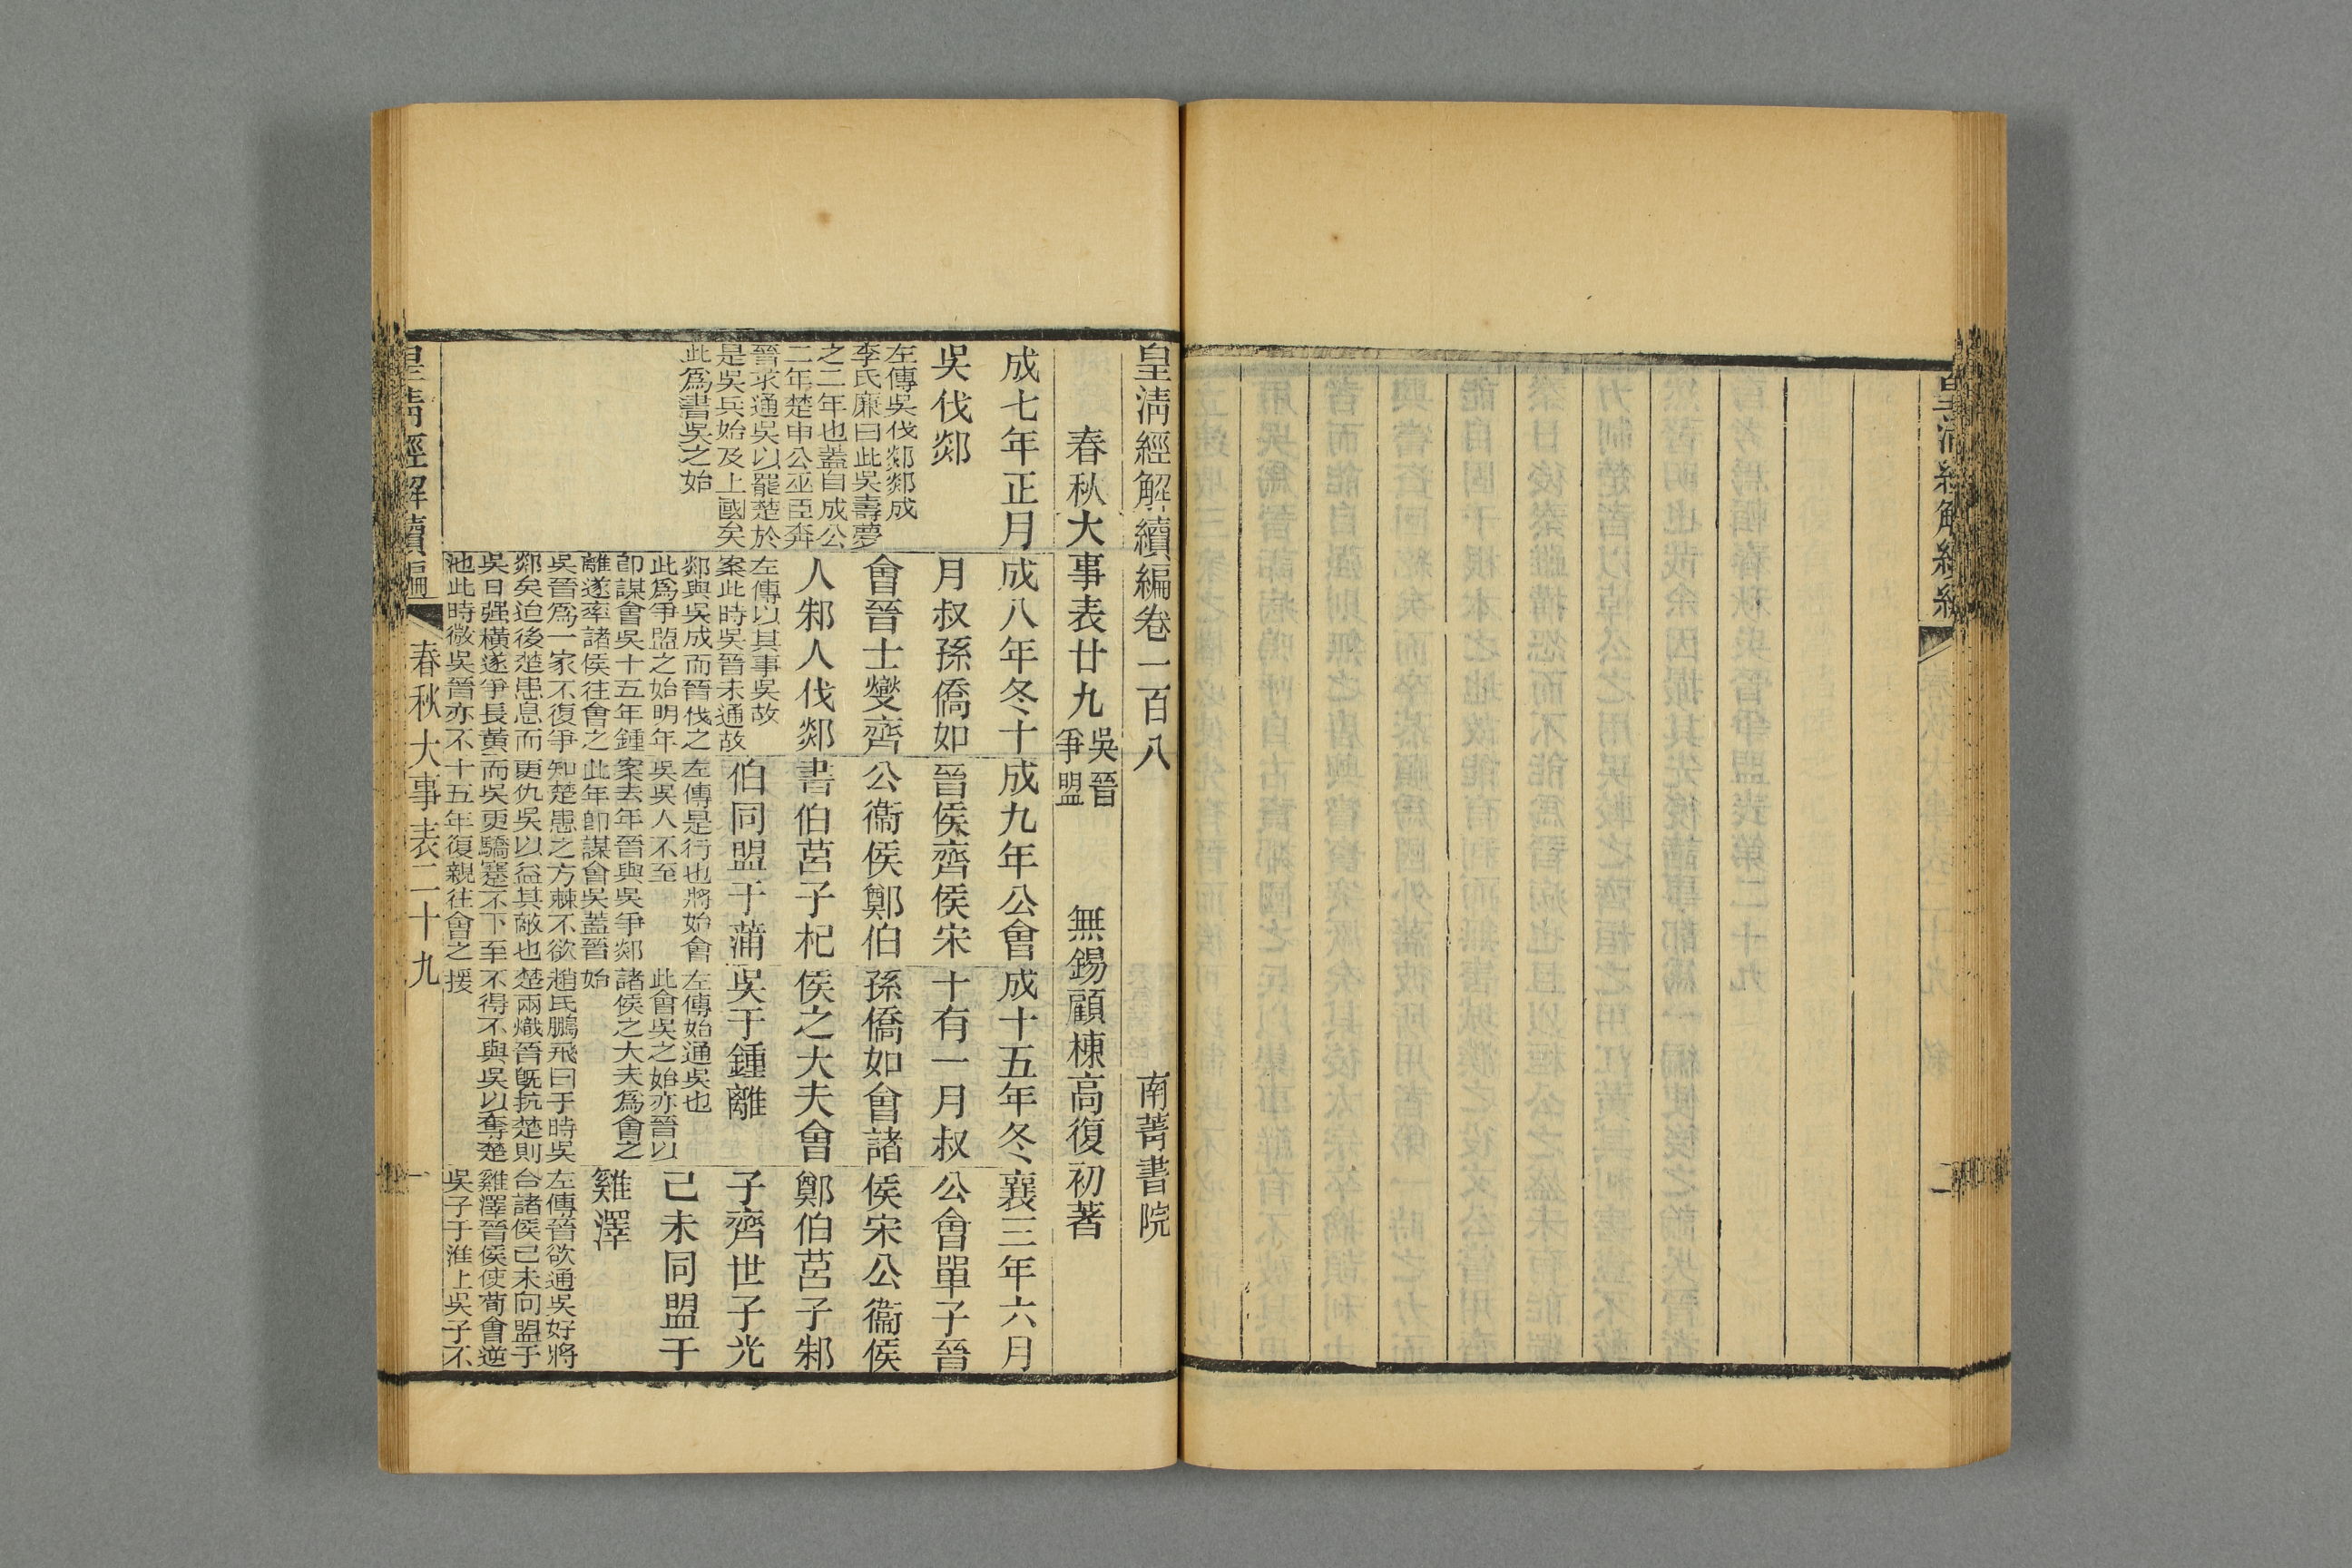 皇清經解續編卷一百八　南菁書院
春秋大事表廿九
吳晉
爭盟
無錫顧棟高復初著
成七年正月
吳伐郯
左傳吳伐郯郯成
李氏廉曰此吳壽夢
之二年也蓋自成公
二年楚申公巫臣奔
晉求通吳以罷楚於
是吳兵始及上國矣
此爲書吳之始
成八年冬十
月叔孫僑如
會晉士燮齊
人邾人伐郯
左傳以其事吳故
案此時吳晉未通故
郯與吳成而晉伐之
此爲爭盟之始明年
卽謀會吳十五年鍾
離遂率諸侯往會之
吳晉爲一家不復爭
郯矣迨後楚患息而
吳日强橫遂爭長黃
池此時微吳晉亦不
成九年公會
晉侯齊侯宋
公衞侯鄭伯
書伯莒子杞
伯同盟于蒲
左傳是行也將始會
吳吳人不至
案去年晉與吳爭郯
此年卽謀會吳蓋晉
知楚患之方棘不欲
更仇吳以益其敵也
而吳更驕蹇不下至
十五年復親往會之
成十五年冬
十有一月叔
孫僑如會諸
侯之大夫會
吳于鍾離
左傳始通吳也
此會吳之始亦晉以
諸侯之大夫爲會之
始
趙氏鵬飛曰于時吳
楚兩熾晉旣抗楚則
不得不與吳以奪楚
援
襄三年六月
公會單子晉
侯宋公衞侯
鄭伯莒子邾
子齊世子光
己未同盟于
雞澤
左傳晉欲通吳好將
合諸侯己未同盟于
雞澤晉侯使荀會逆
吳子于淮上吳子不
皇清經解續編
春秋大事表二十九
一